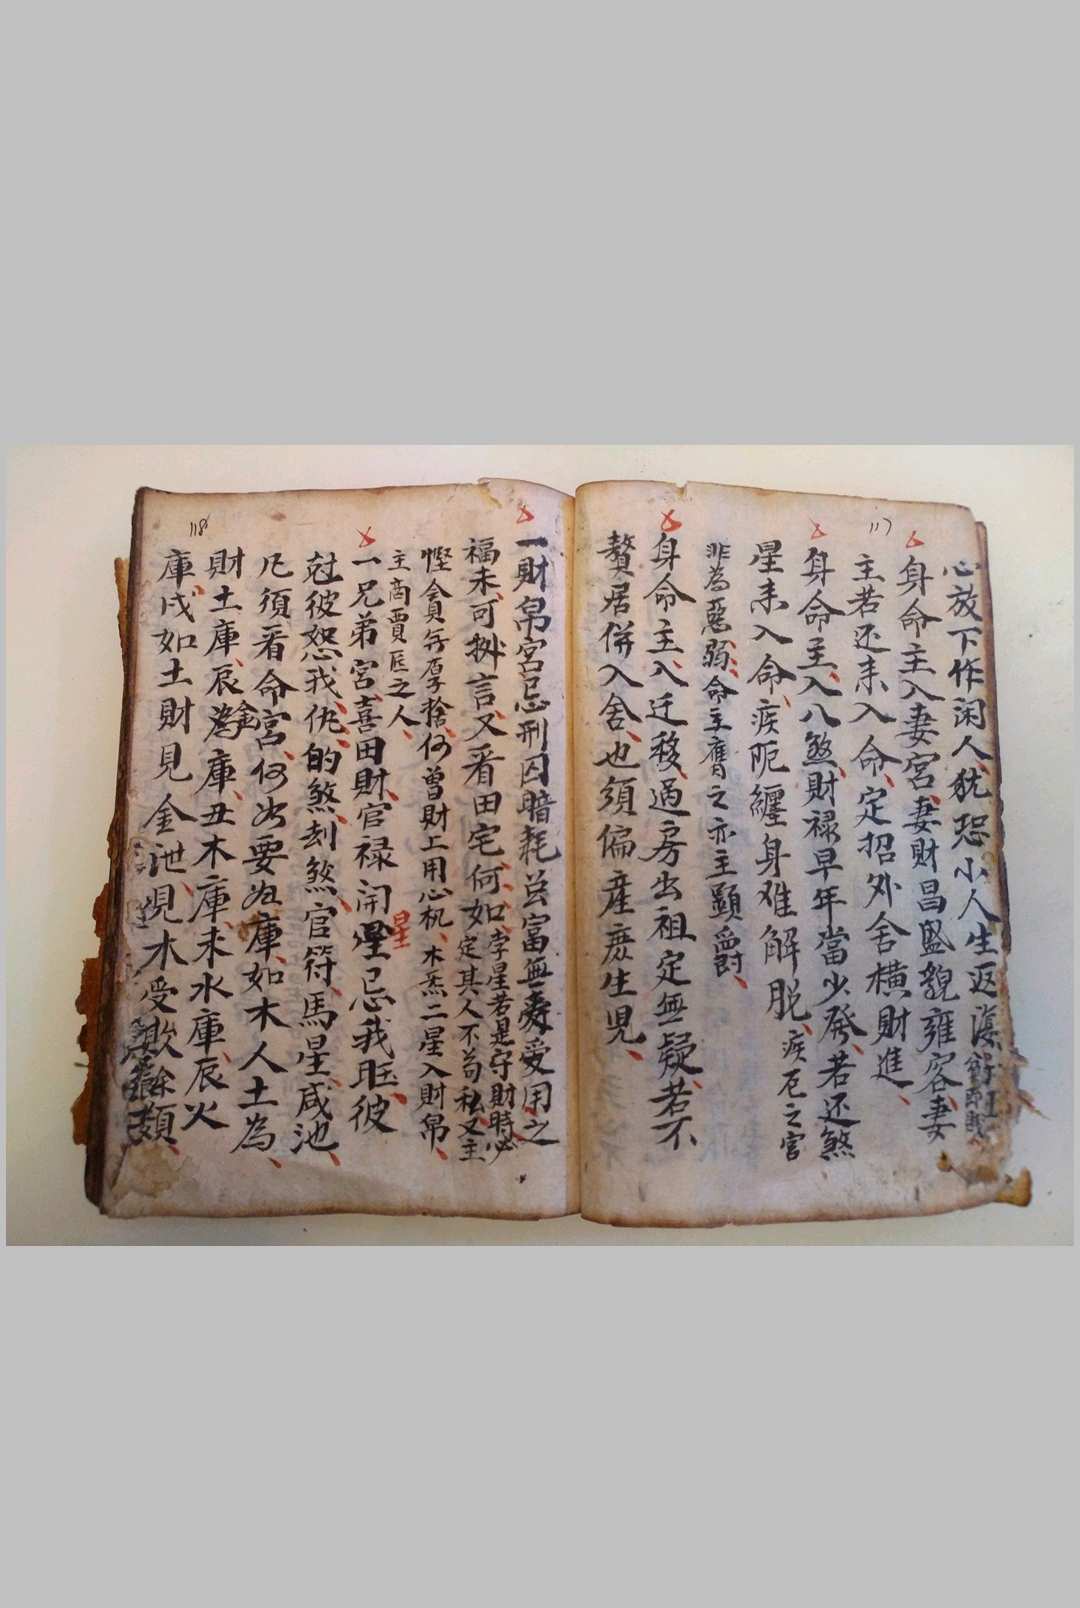 117
心放下作闲人犹恐小人生返
身命主入妻宮妻財昌盛貌雍容妻
主若还来入命定招外舍橫財進
身命主入八煞財禄早年當少發若还煞
星来入命疾厄纏身难解脱疾厄之宮
非為惡弱命主應之亦主顯爵
身命主入迁移過房出祖定無疑若不
贅居併入舍也須偏產庶生兒
118
一財帛宮忌刑囚暗耗若富無壽受用之
福未可拠言又看田宅何如孛星若是守財時必定其人不苟私又主
慳貪無厚捨何曾財上用心机木炁二星入財帛
主商賈匠之人
一兄弟宮喜田財官禄闲星忌我尅彼
星
尅彼怨我仇的煞刦煞官符馬星咸池
凡須看命宮何如要知庫如木人土為
財土庫辰為庫丑木庫未水庫辰火
金
庫戌如土財見金泄見木受欺餘類